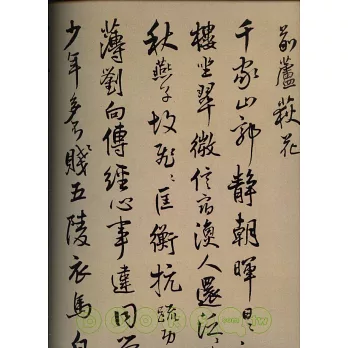 前蘆荻花
千家山郭靜朝暉日
樓坐翠微信宿漁人還泛
秋燕子故飛〻匡衡抗疏功
薄劉向傳經心事違同學
少年多不賤五陵衣馬自